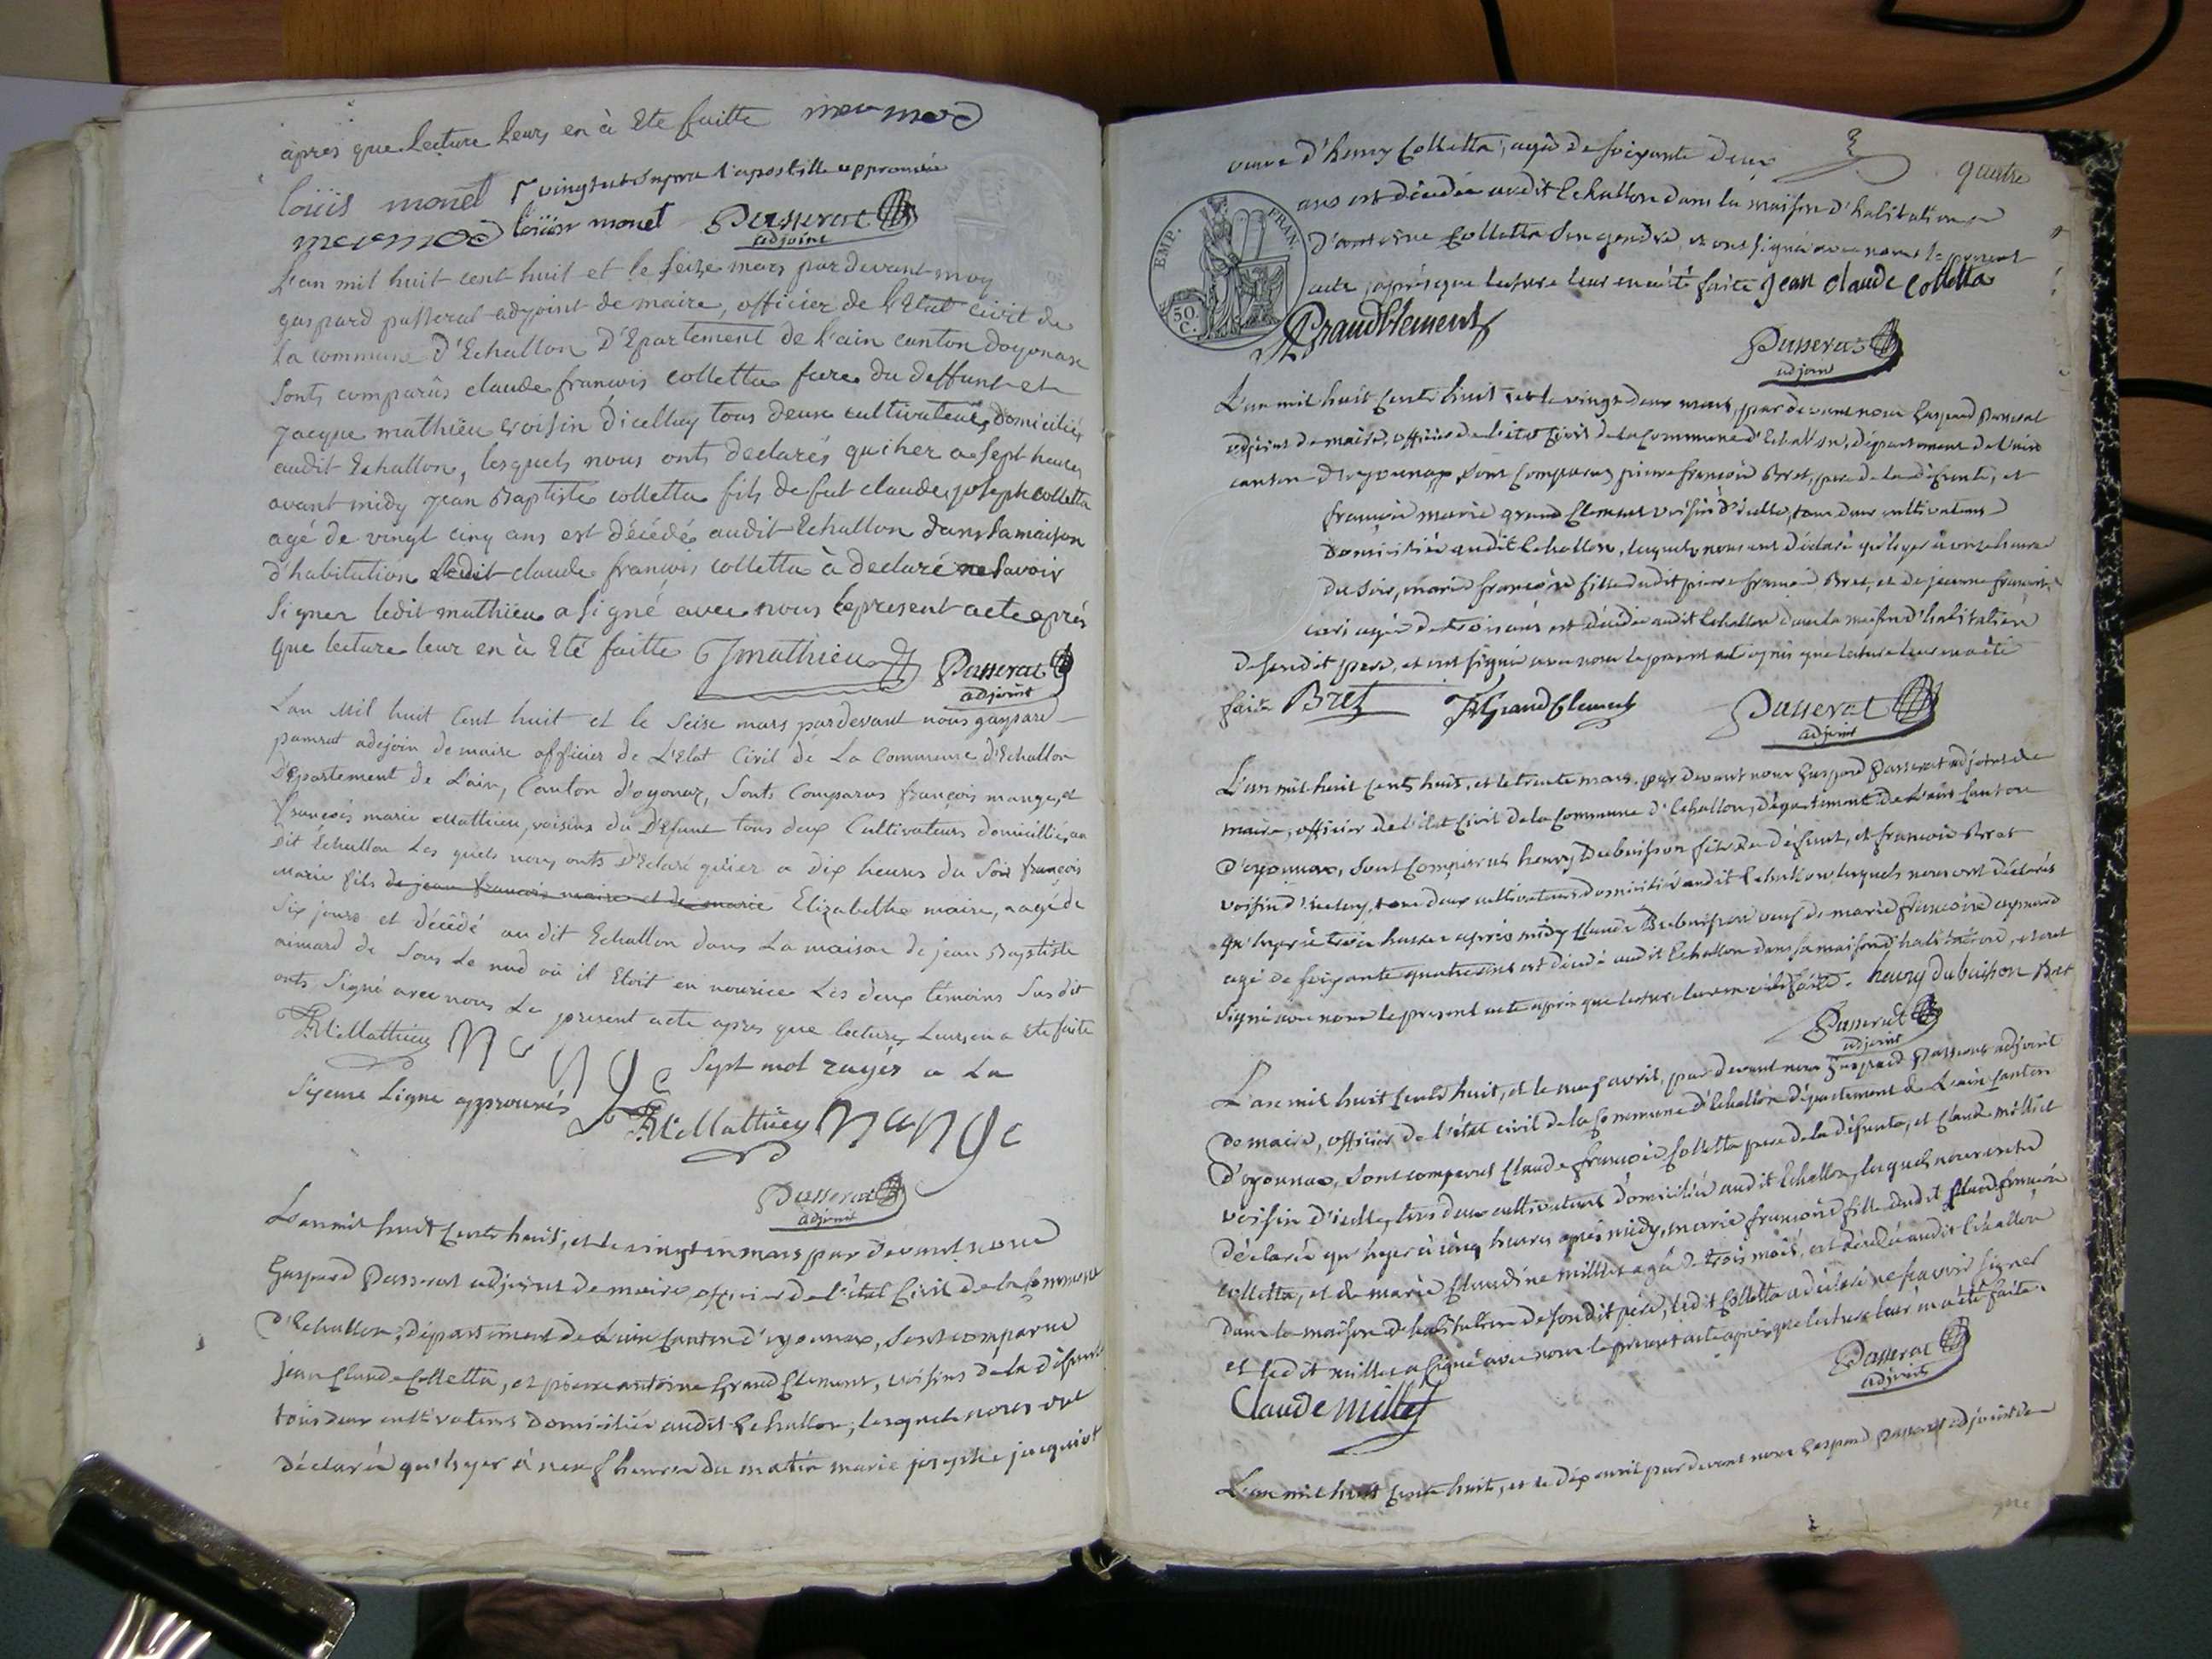 après que lecture leurs en à Ete faitte mermod
louis monet vingt supra l'apostille approuvée
mermod louis monet Passerat
adjoint
L'an mil huit cent huit et le seize mars pardevant moy
gaspard passerat adjoint de maire, officier de l'Etat civil de
la commune d'Echallon D'Epartement de l'ain canton doyonax
sonts comparûs claude francois colletta frere du deffunt et
jacque mathieu voisin d'icelluy tous deux cultivateurs domiciliés
audit Echallon, lesquels nous onts declarés qu'ihier a sept heures
avant midy jean Baptiste colletta fils de fut claude joseph colletta
agé de vingt cinq ans est décédé audit Echallon dans sa maison
d'habitation ledit claude francois colletta à declaré ne savoir
signer ledit mathieu a signé avec nous le present acte aprés
que lecture leur en à Eté faitte J mathieu Passerat
adjoint
L'an Mil huit Cent huit et le Seise mars pardevant nous gaspard
passerat adejoin de maire officier de L'Etat Civil de La Commune d'Echallon
D'Epartement de L'ain, Canton d'oyonaz, Sonts Comparus françois mange, et
françois marie Mathieu, voisins du D'Efunt tous deux Cultivateurs domicilliés au
dit Echallon Les quels nous onts D'Eclaré qu'ier a Dix heures du Soir françois
marie fils de jean francois maire et de marie Elizabethe maire, agé de
Six jours et décédé au dit Echallon dans La maison de jean Baptiste
aimard de Sous Le nud où il Etoit en nourice Les deux témoins Susdit
onts Signé avec nous Le present acte apres que lecture Leurs en a Ete faite
FMMathieu Mange Sept mot rayés a La
Sixieme Ligne approuvés FMMathieu Mange
Passerat
adjoint
L'an mil huit cents huit, et le vingt un mars par devant nous
Gaspard Passerat adjoint de maire officier de l'état Civil de la Commune
d'Echallon, département de L'ain Canton d'oyonnax, sont comparus
jean Claude Colletta, et pierre antoine Grand Clement, voisins de la défunte
tous deux cultivateurs domiciliés audit Echallon, lesquels nous ont
déclarés qu'hyer à neuf heures du matin marie josephe jacquiot
quatre
veuve d'henry Colletta, agée de soixante deux
ans est décédée audit Echallon dans la maison d'habitation
d'antoine Colletta son gendre, et ont signé avec nous le present
acte, après que lecture leur en a été faite Jean Claude Colletta
EMP. FRAN
50 C.
Grandclement
Passerat
adjoint
L'an mil huit cents huit et le vingt deux mars, par devant nous Gaspard Passerat
adjoint de maire, officier de l'état Civil de la Commune d'Echallon, département de l'ain
canton d'oyonnax, sont Comparus pierre françois Bret, pere de la défunte, et
françois marie grand Clement voisin d'icelle, tous deux cultivateurs
domiciliés audit Echallon, lesquels nous ont déclaré qu'hyer à onze heures
du soir, marie françoise fille dudit pierre françois Bret, et de jeanne françoise
agée de trois ans est décédée audit Echallon dans la maison d'habitation
de sondit pere, et ont signé avec nous le present acte après que lecture leur en a été
faite Bret FMGrandClement Passerat
adjoint
L'an mil huit cents huit, et le trente mars, par devant nous Gaspard Passerat adjoint de
maire, officier de l'état Civil de la Commune d'Echallon, département de L'ain Canton
d'oyonnax, sont Comparus henry Dubuisson fils du défunt, et francois Bret
voisin d'iceluy, tous deux cultivateurs domiciliés audit Echallon lesquels nous ont déclarés
qu'hyer à trois heures après midy Claude Dubuisson veuf de marie françoise aymard
agé de soixante quatre ans est décédé audit Echallon dans sa maison d'habitation, et ont
signé avec nous le present acte après que lecture leur en a été faite. henry dubuisson Bret
Passerat
adjoint
L'an mil huit cents huit, et le neuf avril, par devant nous Gaspard Passerat adjoint
de maire, officier de l'état civil de la Commune d'Echallon département de L'ain Canton
d'oyonnax, sont comparus Claude françois Colletta pere de la défunte, et Claude millet
voisin d'icelle, tous deux cultivateurs domiciliés audit Echallon, lesquels nous ont
déclarés qu'hyer à cinq heures après midy, marie françoise fille dudit Claude françois
colletta, et de marie Claudine millet agée de trois mois, est décédée audit Echallon
dans la maison d'habitation de sondit père, ledit Colletta a déclaré ne sçavoir signer
et ledit millet a signé avec nous le present acte après que lecture leur en a été faite.
Claude millet Passerat
adjoint
L'an mil huit cents huit, et le dix avril par devant nous Gaspard Passerat adjoint de